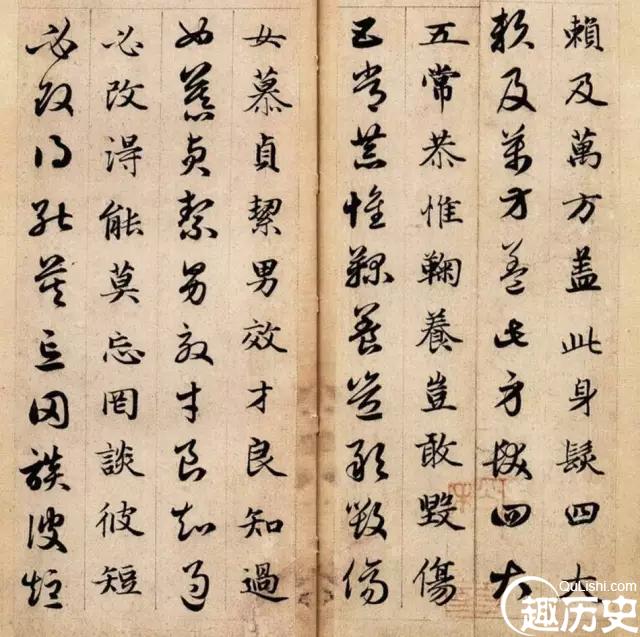 賴及萬方蓋此身髮四大
賴及萬方蓋此身髮四大
五常恭惟鞠養豈敢毀傷
五常恭惟鞠養豈敢毀傷
女慕貞絜男效才良知過
女慕貞絜男效才良知過
必改得能莫忘罔談彼短
必改得能莫忘罔談彼短
QuLishi.com
趣历史